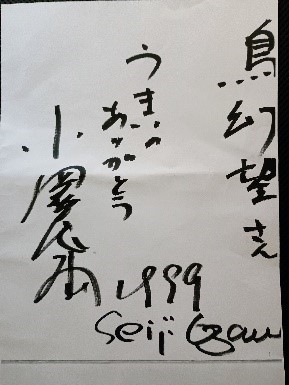 鳥幻望さん
うまいの
ありがとう
小澤征爾
1999
Seiji Ozawa